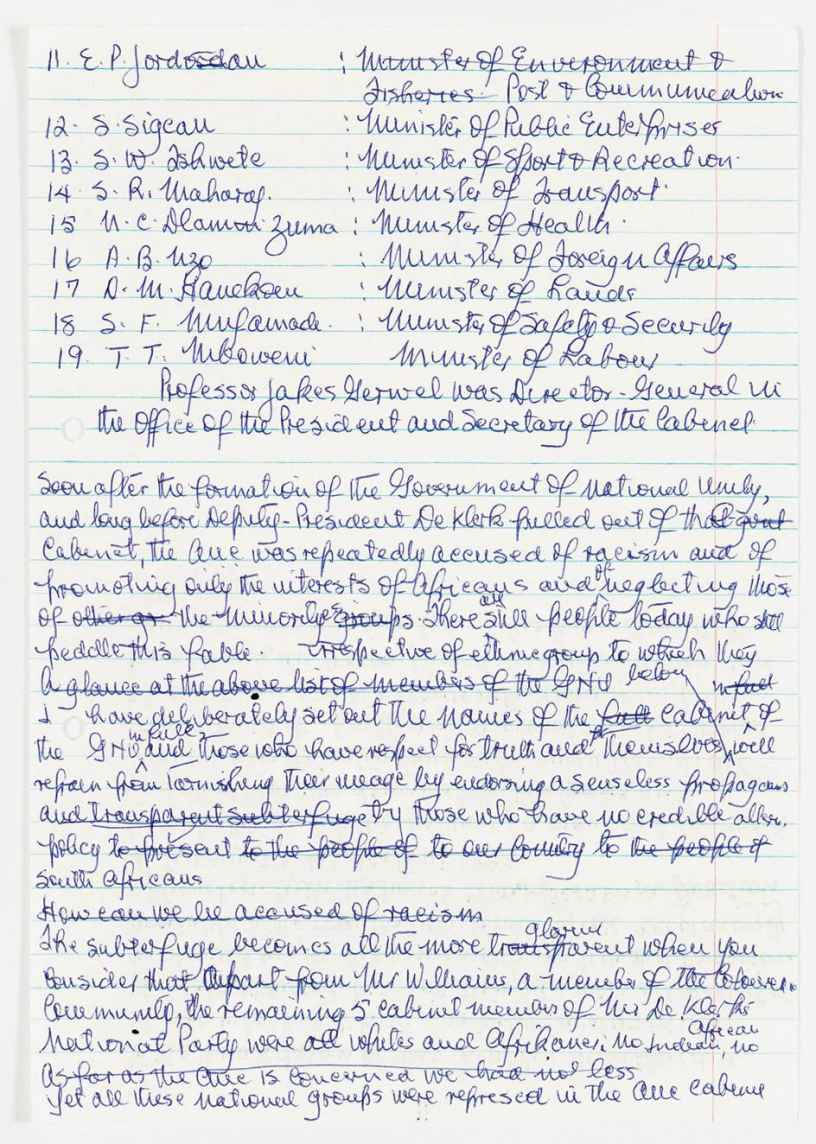 11. E. P. Jordaan : Minister of Environment &
Fisheries. Post & Communication
12. S. Sigcau : Minister of Public Enterprises
13. S. W. Tshwete : Minister of Sport & Recreation.
14 S. R. Maharaj. : Minister of Transport.
15 N. C. Dlamini Zuma : Minister of Health.
16 A. B. Nzo : Minister of Foreign Affairs
17 D. M. Hanekom : Minister of Lands
18 S. F. Mufamadi. : Minister of Safety & Security
19. T. T. Mboweni Minister of Labour
Professor Jakes Gerwel was Director-General in
the Office of the President and Secretary of the Cabinet.
Soon after the formation of the Government of National Unity,
and long before Deputy-President De Klerk pulled out of that govt
Cabinet, the ANC was repeatedly accused of racism and of
promoting only the interests of Africans and of neglecting those
of other gr the minority groups. There are still people today who still
peddle this fable. irrespective of ethnic group to which they
A glance at the above list of members of the GNU belong
I have deliberately set out the names of the full cabinet of
the GNU in full and those who have respect for truth and themselves, will
refrain from tarnishing their image by endorsing a senseless propaganda
and transparent subterfuge by those who have no credible altern.
policy to present to the people of to our Country to the people of
South Africans
How can we be accused of racism
The subterfuge becomes all the more transparent glaring when you
consider that apart from Mr Williams, a member of the Coloured
Community, the remaining 5 cabinet members of Mr De Klerk's
National Party were all whites and Afrikaners. no Indian, no African
As far as the ANC is concerned we had not less
Yet all these national groups were represed in the ANC cabinet